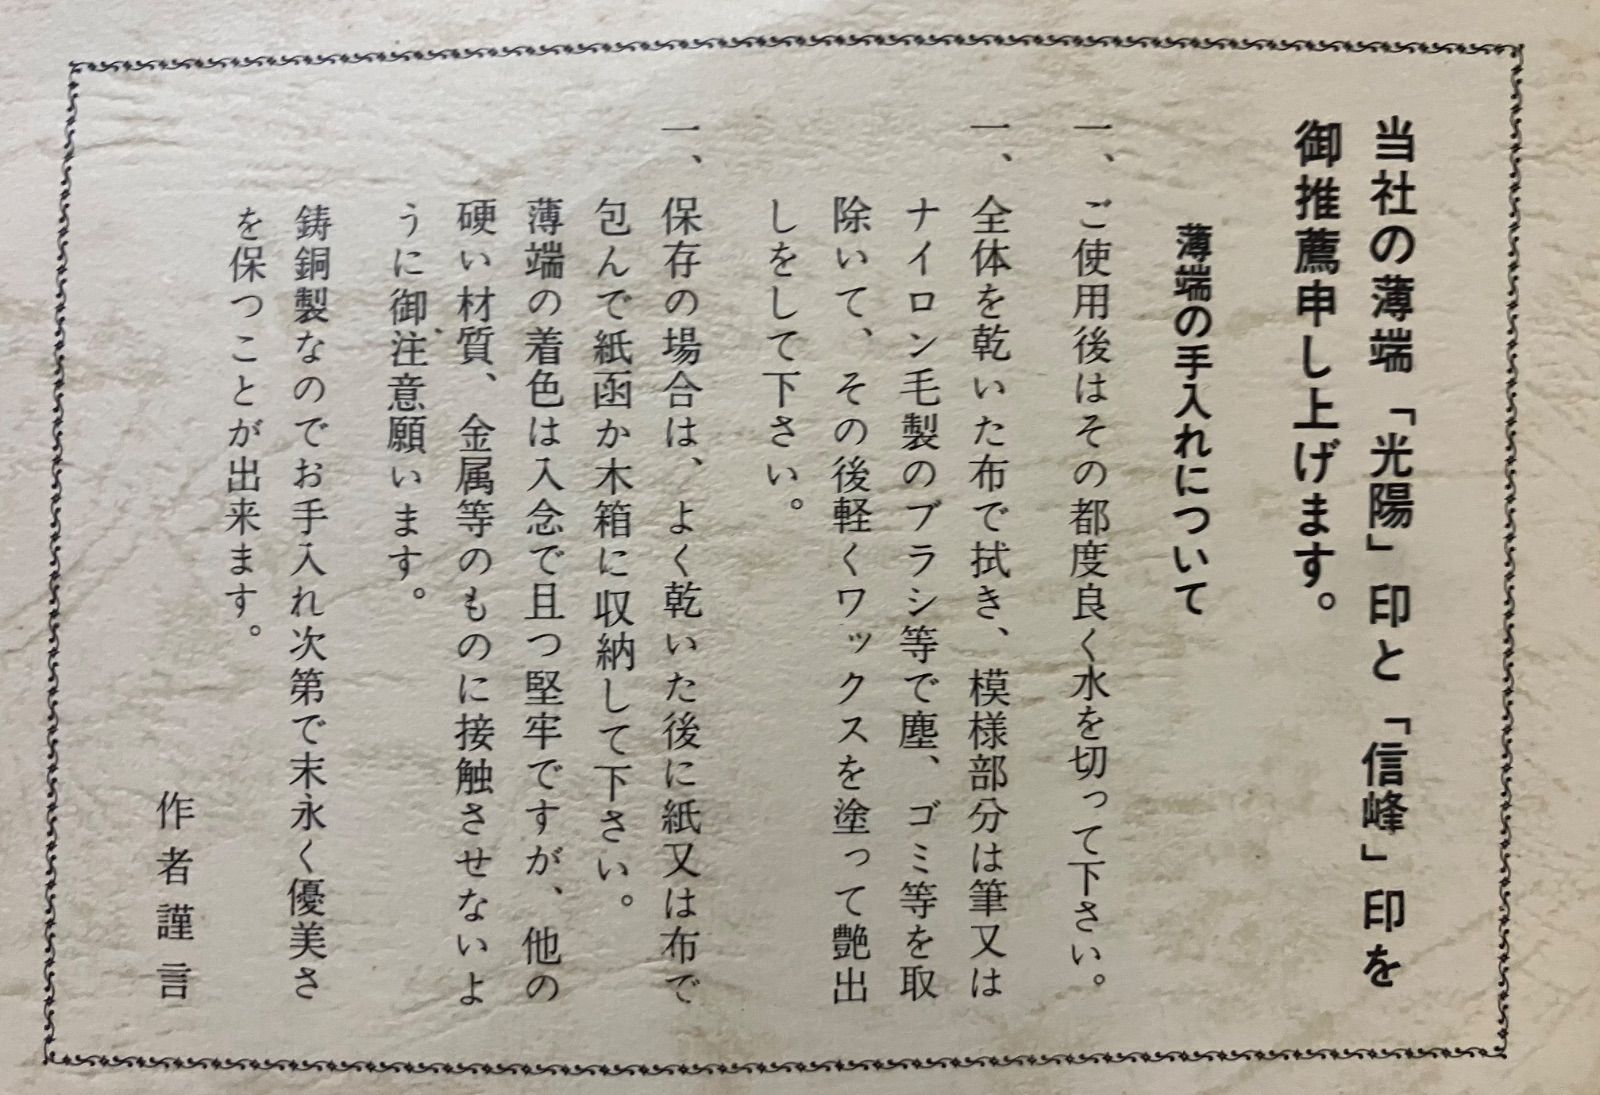 当社の薄端「光陽」印と「信峰」印を
御推薦申し上げます。
薄端の手入れについて
一、ご使用後はその都度良く水を切って下さい。
一、全体を乾いた布で拭き、模様部分は筆又は
ナイロン毛製のブラシ等で塵、ゴミ等を取
除いて、その後軽くワックスを塗って艶出
しをして下さい。
一、保存の場合は、よく乾いた後に紙又は布で
包んで紙函か木箱に収納して下さい。
薄端の着色は入念で且つ堅牢ですが、他の
硬い材質、金属等のものに接触させないよ
うに御注意願います。
鋳銅製なのでお手入れ次第で末永く優美さ
を保つことが出来ます。
作者謹言